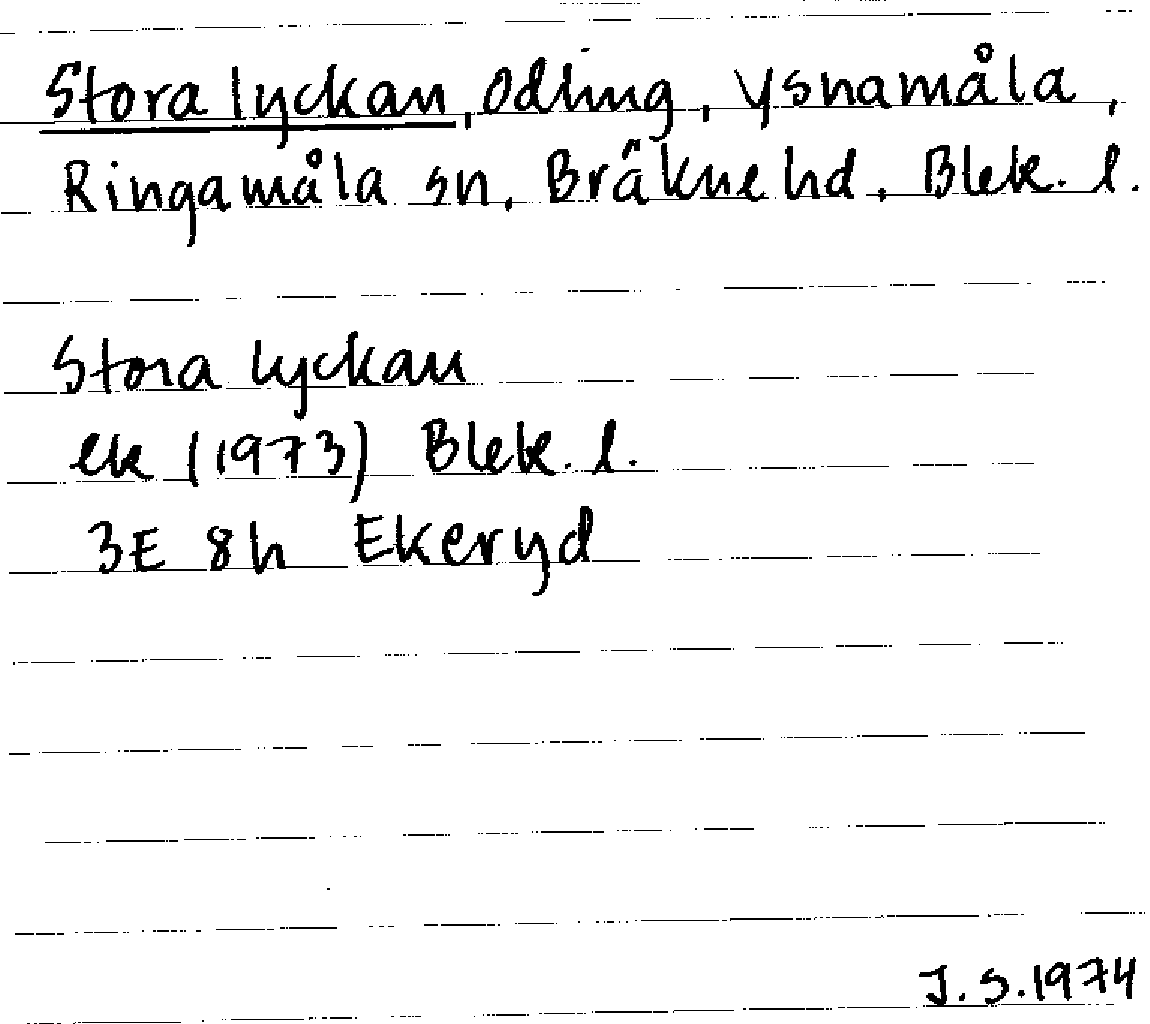 Stora lyckan, Odling, Ysnamåla,
Ringamåla sn, Bräkne hd, Blek. l.
Stora lyckan
ek (1973) Blek. l.
3E 8h Ekeryd
J.S.1974